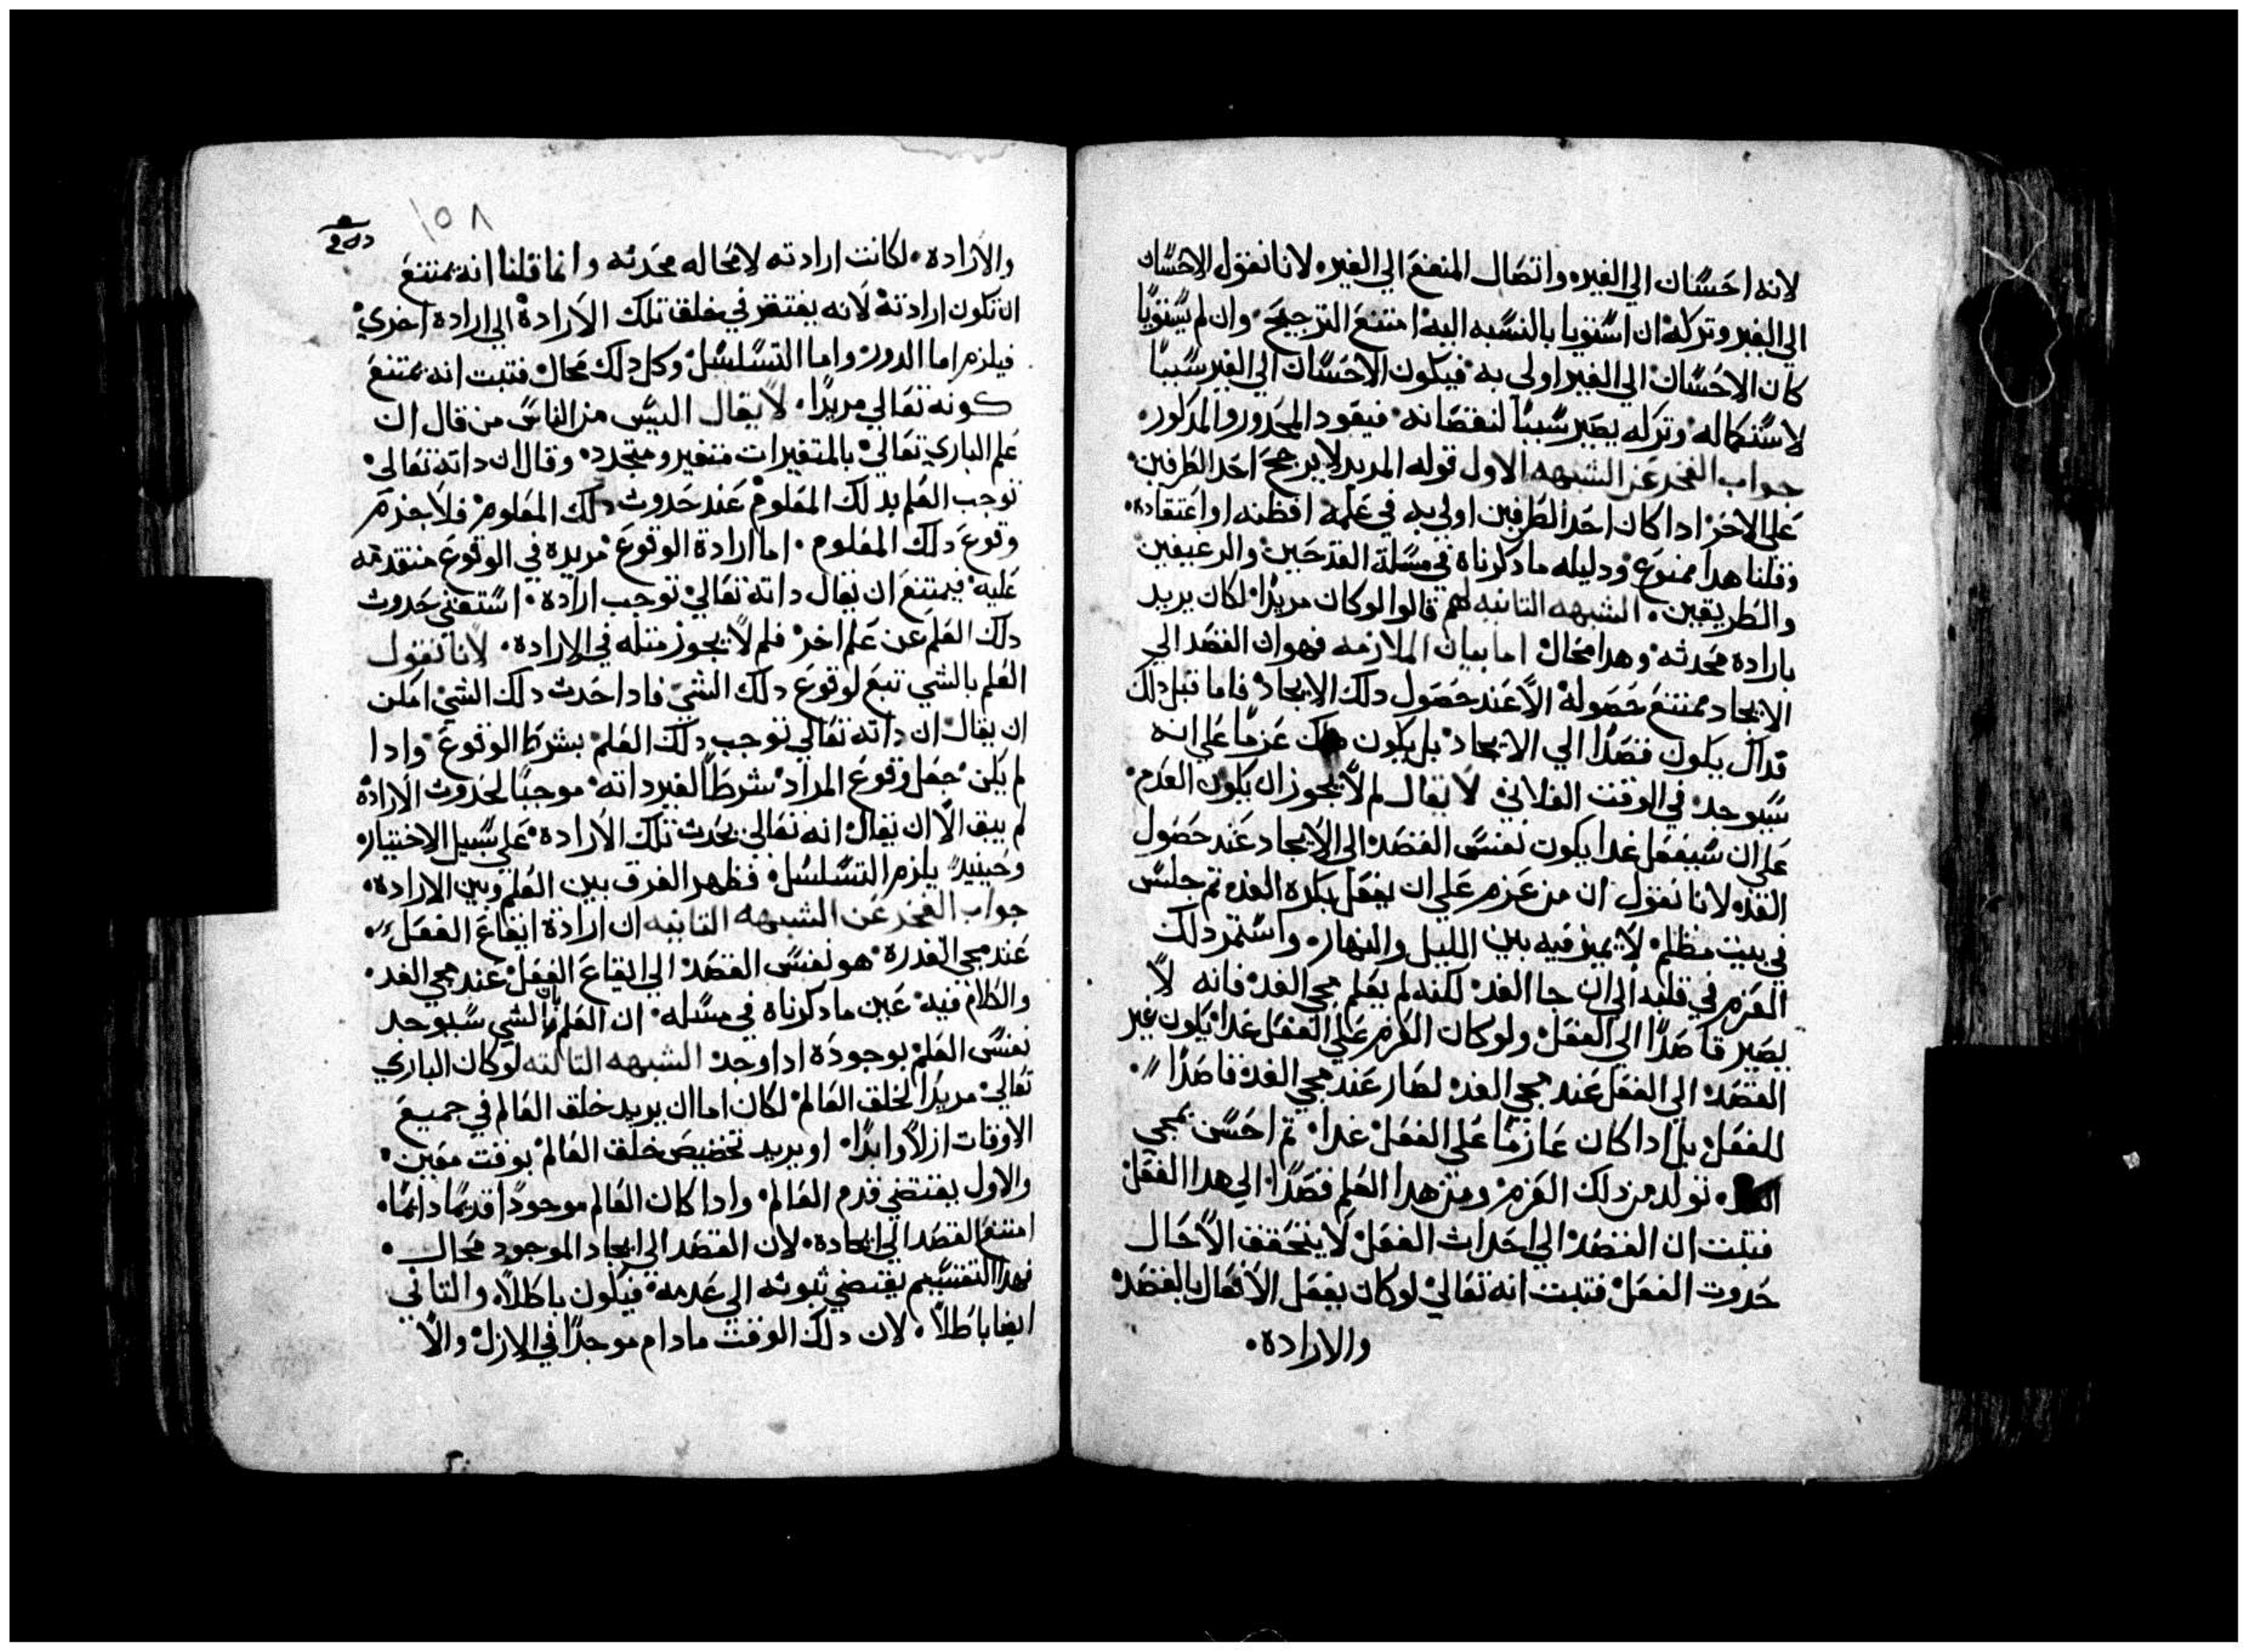 لانه احسان الي الغير. واتصال المنفع الي الغير. لانا نقول الاحسان
الي الغير وتركه ان استويا بالنسبه اليه امتنع الترجيح. وان لم يستويا
كان الاحسان الي الغير اولي به فيكون الاحسان الي الغير سببا
لاستكماله وتركه يصير سببا لنقصانه فيعود المحدور المدكور.
جواب الفخر عن الشبهه الاول قوله المريد لا يرجح احد الطرفين
علي الاخر ادا كان احد الطرفين اولي به في علمه اوظنه او اعتقاده.
وقلنا هدا ممنوع ودليله ما دكرناه في مسلة القدحين والرغيفين
والطريقين. الشبهه التانيه لهم قالوا لو كان مريدا لكان يريد
بارادة محدثه وهدا محال اما بيان الملازمه فهو ان القصد الي
الايجاد ممتنع حصوله الا عند حصول دلك الايجاد فاما قبل دلك
قد ال يكون قصدا الي الايجاد بل يكون عزما علي انه
سيوجد في الوقت الفلاني لا يقال لم لا يجوز ان يكون العزم
علي ان سيفعل غدا يكون نفس القصد الي الايجاد عند حصول
الغد لانا نقول ان من عزم علي ان يفعل بكرة الغد تم جلس
في بيت مظلم لا يميز فيه بين الليل والنهار. واستمر دلك
العزم في قلبه الي ان جا الغد لكنه لم يعلم مجي الغد فانه لا
يصير قاصدا الي الفعل ولو كان العزم علي الفعل غدا يكون غير
القصد الي الفعل عند مجي الغد لصار عند مجي الغد قاصدا
للفعل بل ادا كان عازما علي الفعل غدا تم احس بمجي
تولد من دلك العزم ومن هدا العلم قصدا الي هدا الفعل
فتبت ان القصد الي احداث الفعل لا يتحقق الا حال
حدوت الفعل فتبت انه تعالي لو كان يفعل الافعال بالقصد
والارادة.
١٥٨
والارادة. لكانت ارادته لا محاله محدثه وانما قلنا انه يمتنع
ان تكون ارادته لانه يفتقر في خلق تلك الارادة الي ارادة اخري
فيلزم اما الدور واما التسلسل وكل دلك محال فتبت انه يمتنع
كونه تعالي مريدا. لا يقال اليس من الناس من قال ان
علم الباري تعالي بالمتغيرات متغير ومتجدد وقال ان داته تعالي
توجب العلم بدلك المعلوم عند حدوث دلك المعلوم فلا جزم
وقوع دلك المعلوم. اما ارادة الوقوع مريده في الوقوع متقدمه
عليه فيمتنع ان يقال داته تعالي توجب ارادة. استغني حدوث
دلك العلم عن علم اخر فلم لا يجوز متله في الارادة. لانا نقول
العلم بالشي تبع لوقوع دلك الشي فادا حدث دلك الشي امكن
ان يقال ان داته تعالي توجب دلك العلم بشرط الوقوع وادا
لم يكن جعل وقوع المراد شرطا لغير داته موجبا لحدوث الارادة
لم يبق الا ان يقال انه تعالي يحدث تلك الارادة علي سبيل الاختيار
وحينيد يلزم التسلسل فظهر الفرق بين العلم وبين الارادة.
جواب الفخر عن الشبهه التانيه ان ارادة ايقاع الفعل
عند مجي القدرة هو نفس القصد الي ايقاع الفعل عند مجي الغد
والكلام فيه عين ما دكرناه في مسله ان العلم بان الشي سيوجد
نفس العلم بوجوده ادا وجد الشبهه التالته لو كان الباري
تعالي مريدا لخلق العالم لكان اما ان يريد خلق العالم في جميع
الاوقات ازلا وابدا. او يريد تخضيص خلق العالم بوقت معين
والاول يقتضي قدم العالم وادا كان العالم موجودا قديما دايما.
امتنع القصد الي ايجاده. لان القصد الي ايجاد الموجود محال.
فهدا التقسيم يقتضي ثبوته الي عدمه فيكون باطلا. والتاني
ايضا باطلا. لان دلك الوقت مادام موجدا في الازل والا